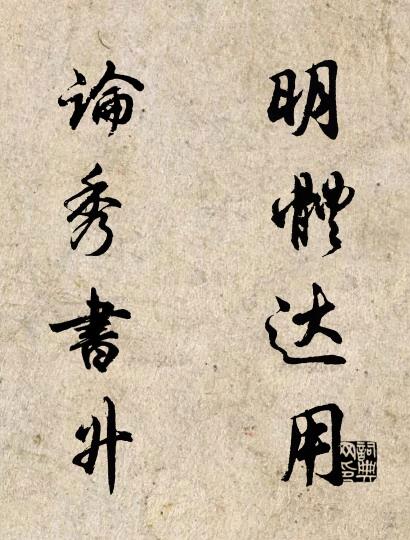 明體达用
論秀書升